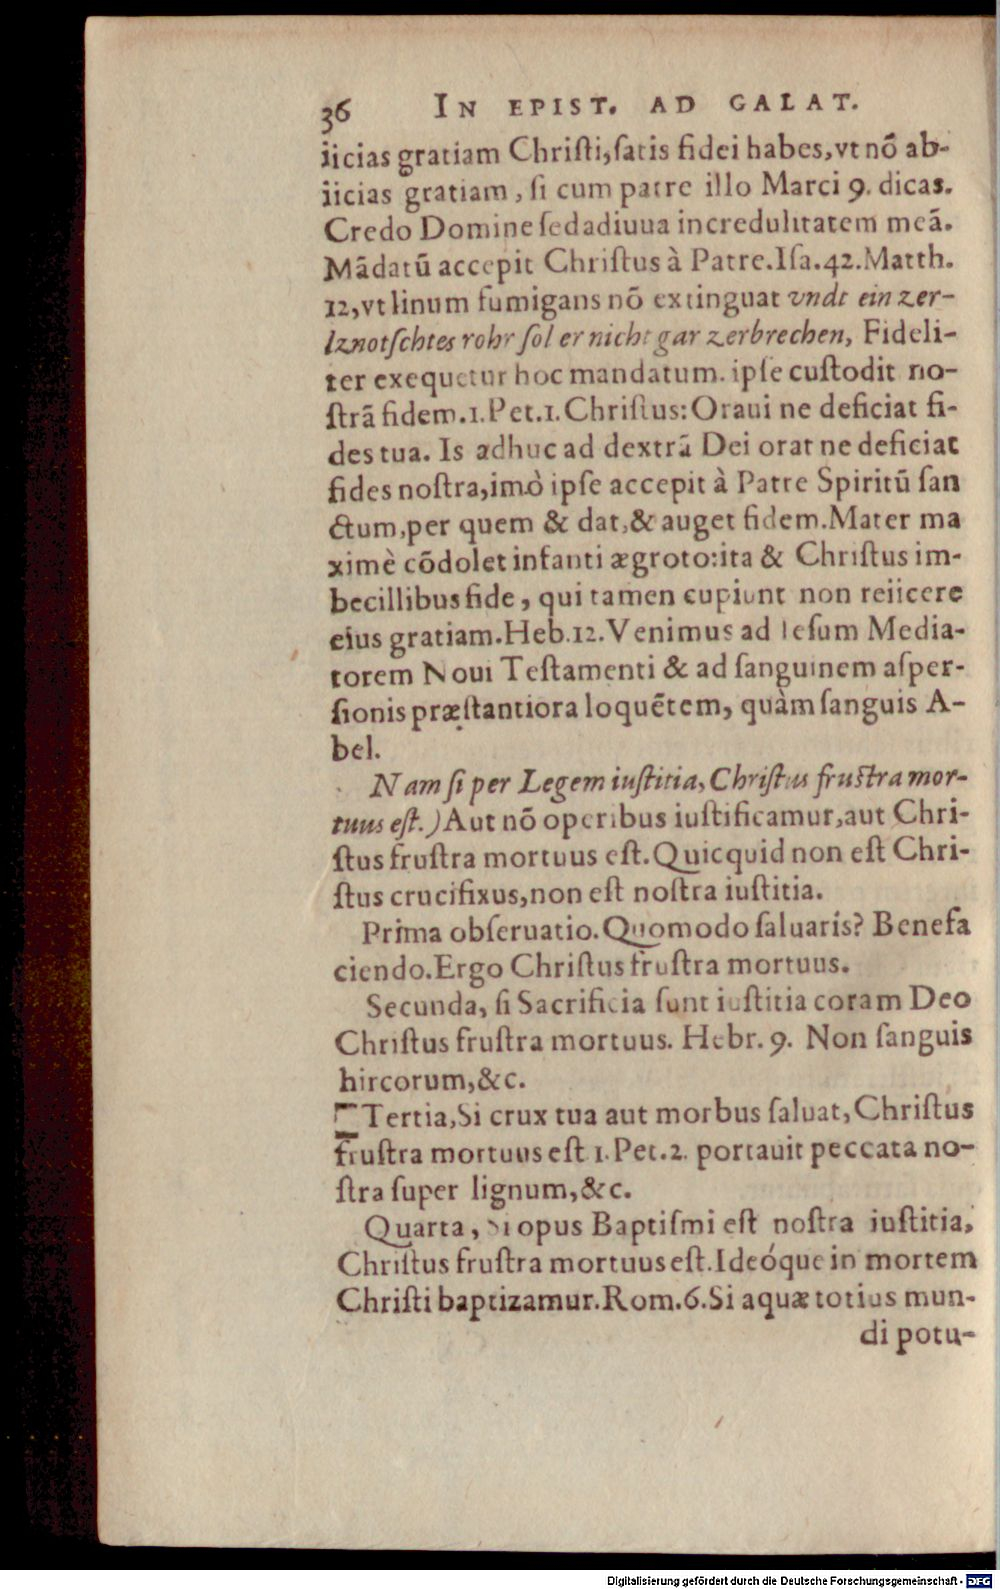 36 IN EPIST. AD GALAT.
iicias gratiam Chriſti,ſatis fidei habes,vt nõ ab-
iicias gratiam, ſi cum patre illo Marci 9. dicas.
Credo Domine ſed adiuua incredulitatem meã.
Mãdatũ accepit Chriſtus à Patre.Iſa.42.Matth.
12,vt linum fumigans nõ extinguat vndt ein zer-
lznotſchtes rohr ſol er nicht gar zerbrechen, Fideli-
ter exequetur hoc mandatum. ipſe cuſtodit no-
ſtrã fidem.1.Pet.1.Chriſtus:Oraui ne deficiat fi-
des tua. Is adhuc ad dextrã Dei orat ne deficiat
fides noſtra,imò ipſe accepit à Patre Spiritũ ſan
ctum,per quem & dat,& auget fidem.Mater ma
ximè cõdolet infanti ægroto:ita & Chriſtus im-
becillibus fide, qui tamen cupiunt non reiicere
eius gratiam.Heb.12.Venimus ad Ieſum Media-
torem Noui Teſtamenti & ad ſanguinem aſper-
ſionis præſtantiora loquẽtem, quàm ſanguis A-
bel.
Nam ſi per Legem iuſtitia, Chriſtus fruſtra mor-
tuus eſt.) Aut nõ operibus iuſtificamur,aut Chri-
ſtus fruſtra mortuus eſt.Quicquid non eſt Chri-
ſtus crucifixus,non eſt noſtra iuſtitia.
Prima obſeruatio.Quomodo ſaluaris? Benefa
ciendo.Ergo Chriſtus fruſtra mortuus.
Secunda, ſi Sacrificia ſunt iuſtitia coram Deo
Chriſtus fruſtra mortuus. Hebr. 9. Non ſanguis
hircorum,&c.
Tertia,Si crux tua aut morbus ſaluat,Chriſtus
fruſtra mortuus eſt 1.Pet.2. portauit peccata no-
ſtra ſuper lignum,&c.
Quarta, Si opus Baptiſmi eſt noſtra iuſtitia,
Chriſtus fruſtra mortuus eſt.Ideóque in mortem
Chriſti baptizamur.Rom.6.Si aquæ totius mun-
di potu-
Digitalisierung gefördert durch die Deutsche Forschungsgemeinschaft - DFG